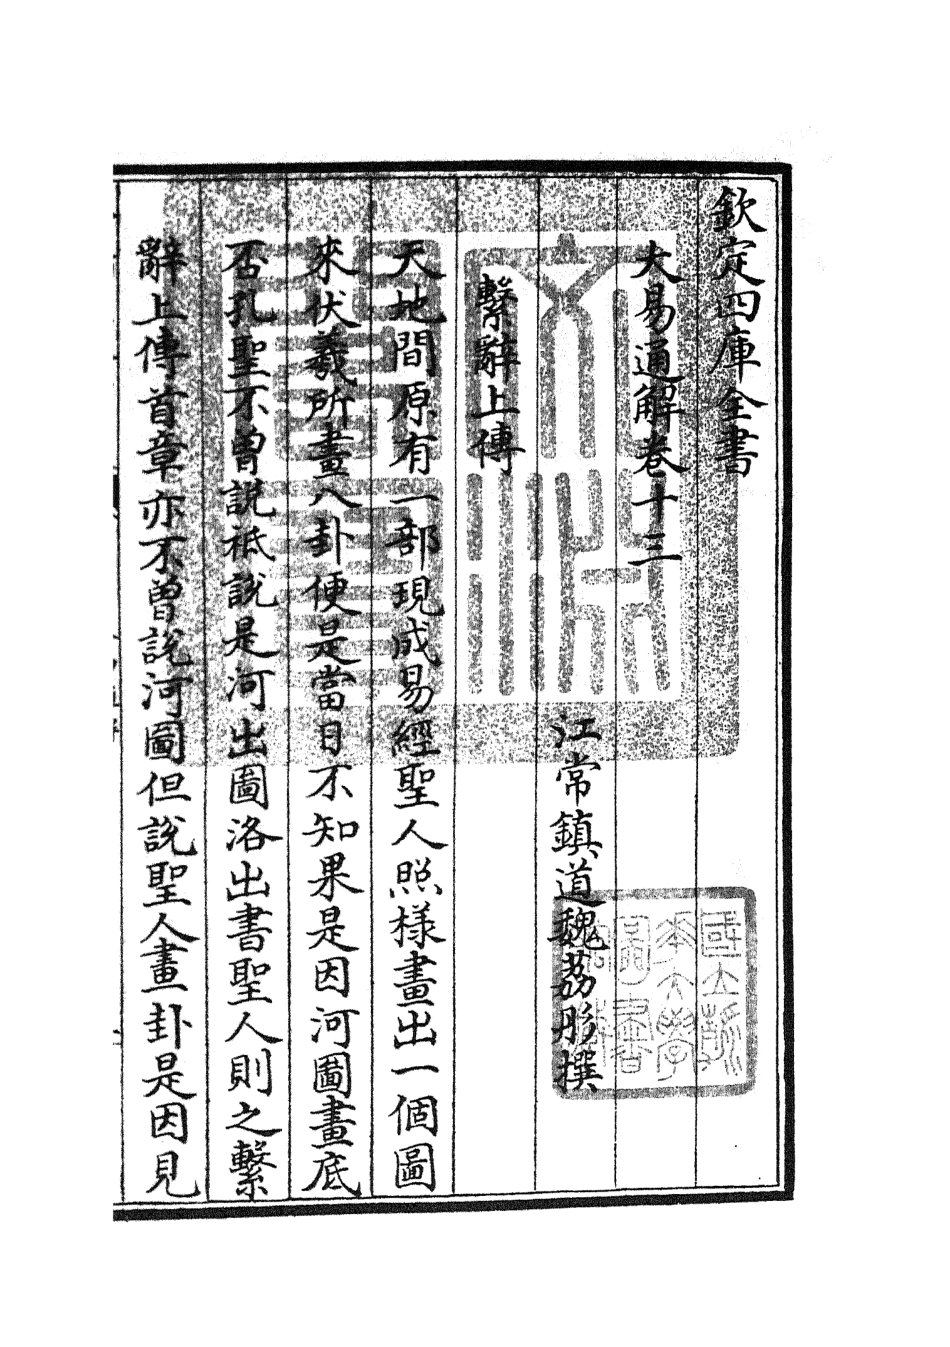 欽定四庫全書
大易通解卷十三
江常鎮道魏荔彤撰
繫辭上傳
天地間原有一部現成易經聖人照樣畫出一個圖
來伏羲所畫八卦便是當日不知果是因河圖畫底
否孔聖不曾說秪說是河出圖洛出書聖人則之繫
辭上傳首章亦不曾說河圖但說聖人畫卦是因見